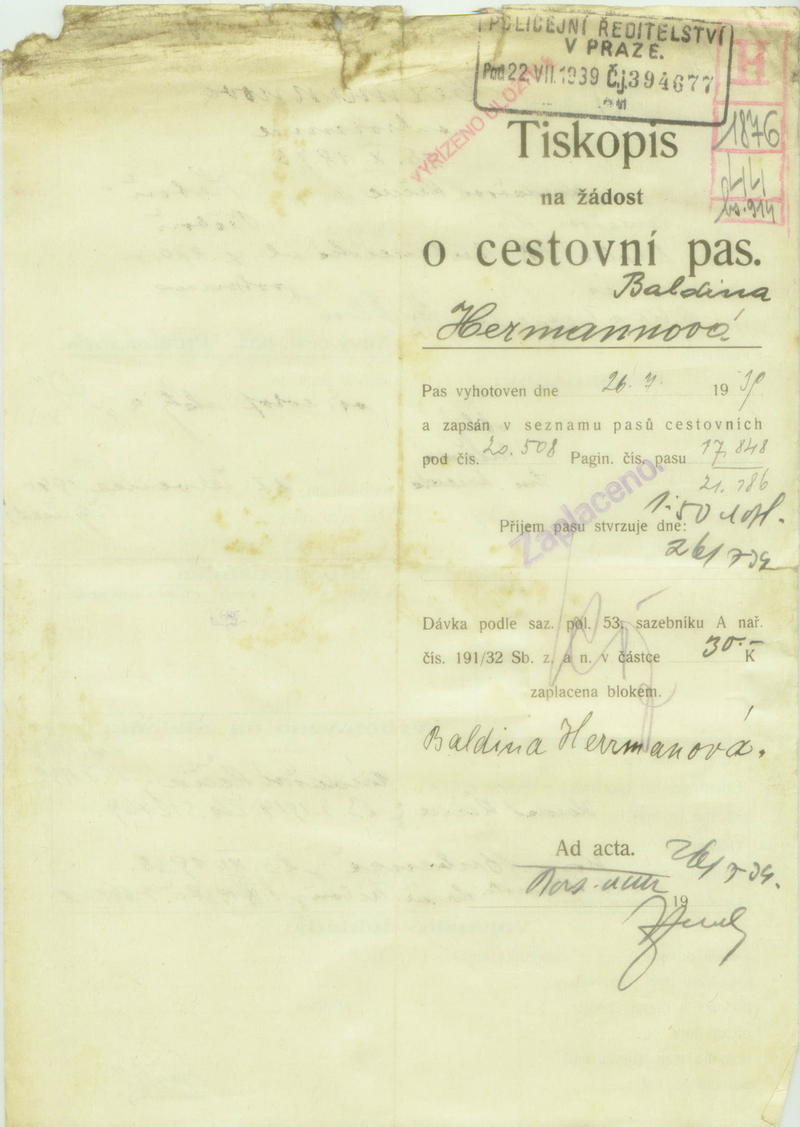 POLICEJNÍ ŘEDITELSTVÍ
V PRAZE.
Pod 22.VII.1939 Čj. 394677
H
1876
VYŘÍZENO ULOŽENO
Tiskopis
na žádost
o cestovní pas.
Baldina
Hermannová
Pas vyhotoven dne 26. 7. 19 39
a zapsán v seznamu pasů cestovních
pod čís. 20.508 Pagin. čís. pasu 17.848
21.786
Zaplaceno.
Příjem pasu stvrzuje dne:
Dávka podle saz. pol. 53, sazebníku A nař.
čís. 191/32 Sb. z. a n. v částce 30.- K
zaplacena blokem.
Baldina Herrmanová.
Ad acta.
19